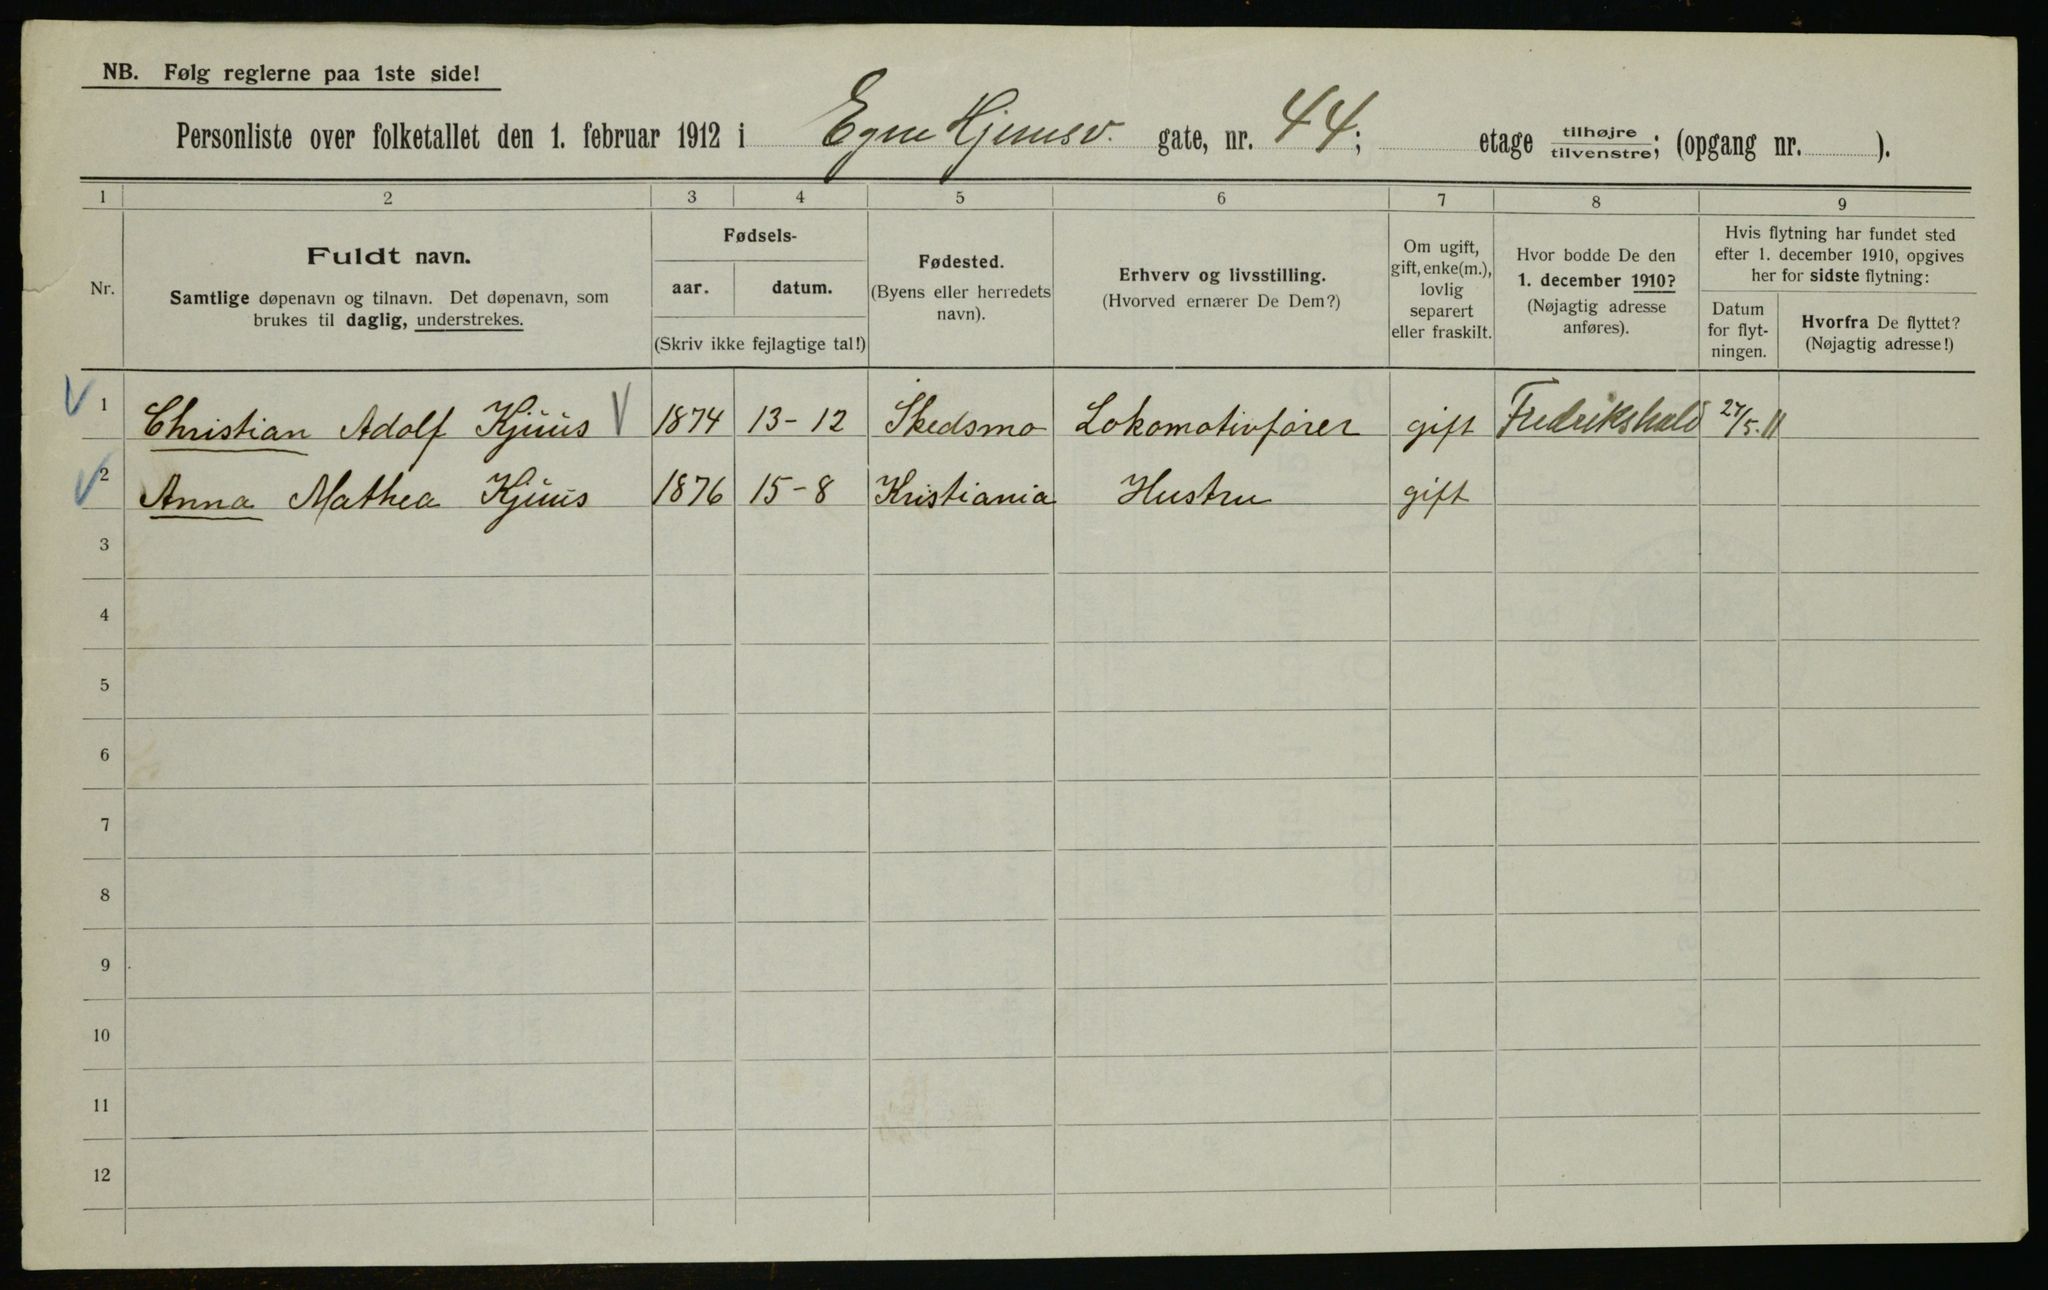 NB. Følg reglerne paa 1ste side!
Personliste over folketallet den 1. februar 1912 i Egne Hjemsv. gate, nr. 44; etage tilhøjre/tilvenstre; (opgang nr. ).
1 2 3 4 5 6 7 8 9
Nr.
Fuldt navn.
Samtlige døpenavn og tilnavn. Det døpenavn, som
brukes til daglig, understrekes.
Fødsels-
aar. datum.
(Skriv ikke fejlagtige tal!)
Fødested.
(Byens eller herredets
navn).
Erhverv og livsstilling.
(Hvorved ernærer De Dem?)
Om ugift,
gift, enke(m.),
lovlig
separert
eller fraskilt.
Hvor bodde De den
1. december 1910?
(Nøjagtig adresse
anføres).
Hvis flytning har fundet sted
efter 1. december 1910, opgives
her for sidste flytning:
Datum
for flyt-
ningen.
Hvorfra De flyttet?
(Nøjagtig adresse!)
1 Christian Adolf Kjuus 1874 13-12 Skedsmo Lokomotivfører gift Fredrikshald 27/5.11
2 Anna Mathea Kjuus 1876 15-8 Kristiania Hustru gift
3
4
5
6
7
8
9
10
11
12